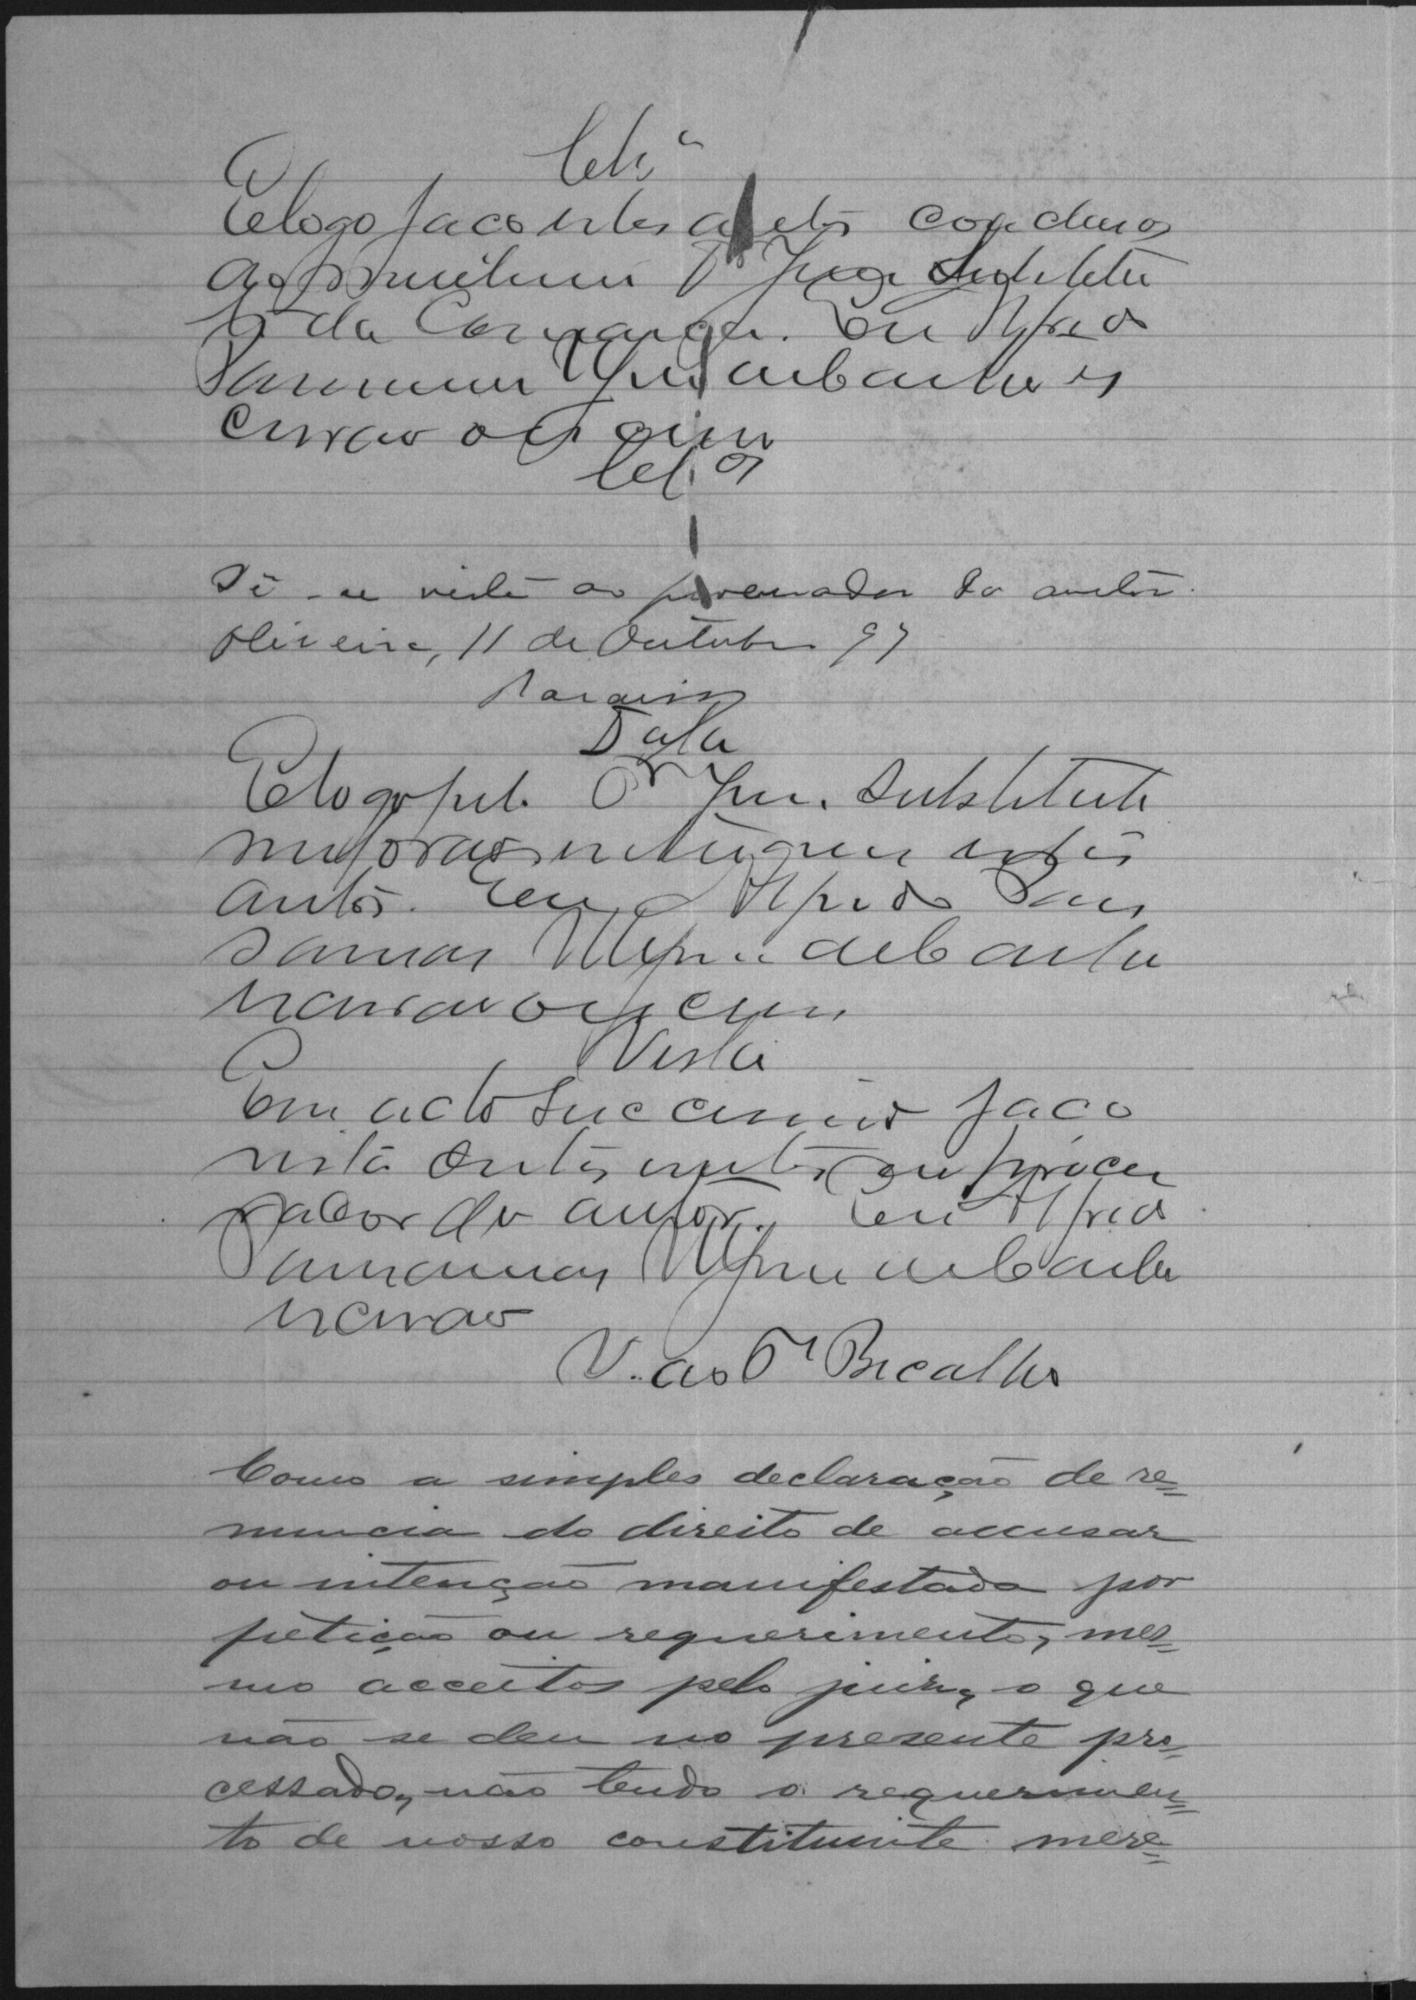 Cls.
E logo faço estes autos conclusos
ao Dr Juiz Substitu
to da Comarca. Eu Alfredo
es
crivão o escrevi
Cls.
Dê-se vista ao procurador do autor.
Oliveira, 11 de Outubro 97
Data
E logo pelo Dr Juiz Substituto
me foram entregues estes
autos. Eu Alfredo
escrivão o escrevi
Vista
Em acto successivo faço
vista destes autos ao procu
rador do autor. Eu Alfredo
escrivão
V. ao Dr Bicalho
Como a simples declaração de re=
nuncia do direito de accusar
ou intenção manifestada por
petição ou requerimento, mes=
mo acceitos pelo juiz, o que
não se deu no presente pro=
cessado, não tendo o requerimen=
to de nosso constituinte mere=